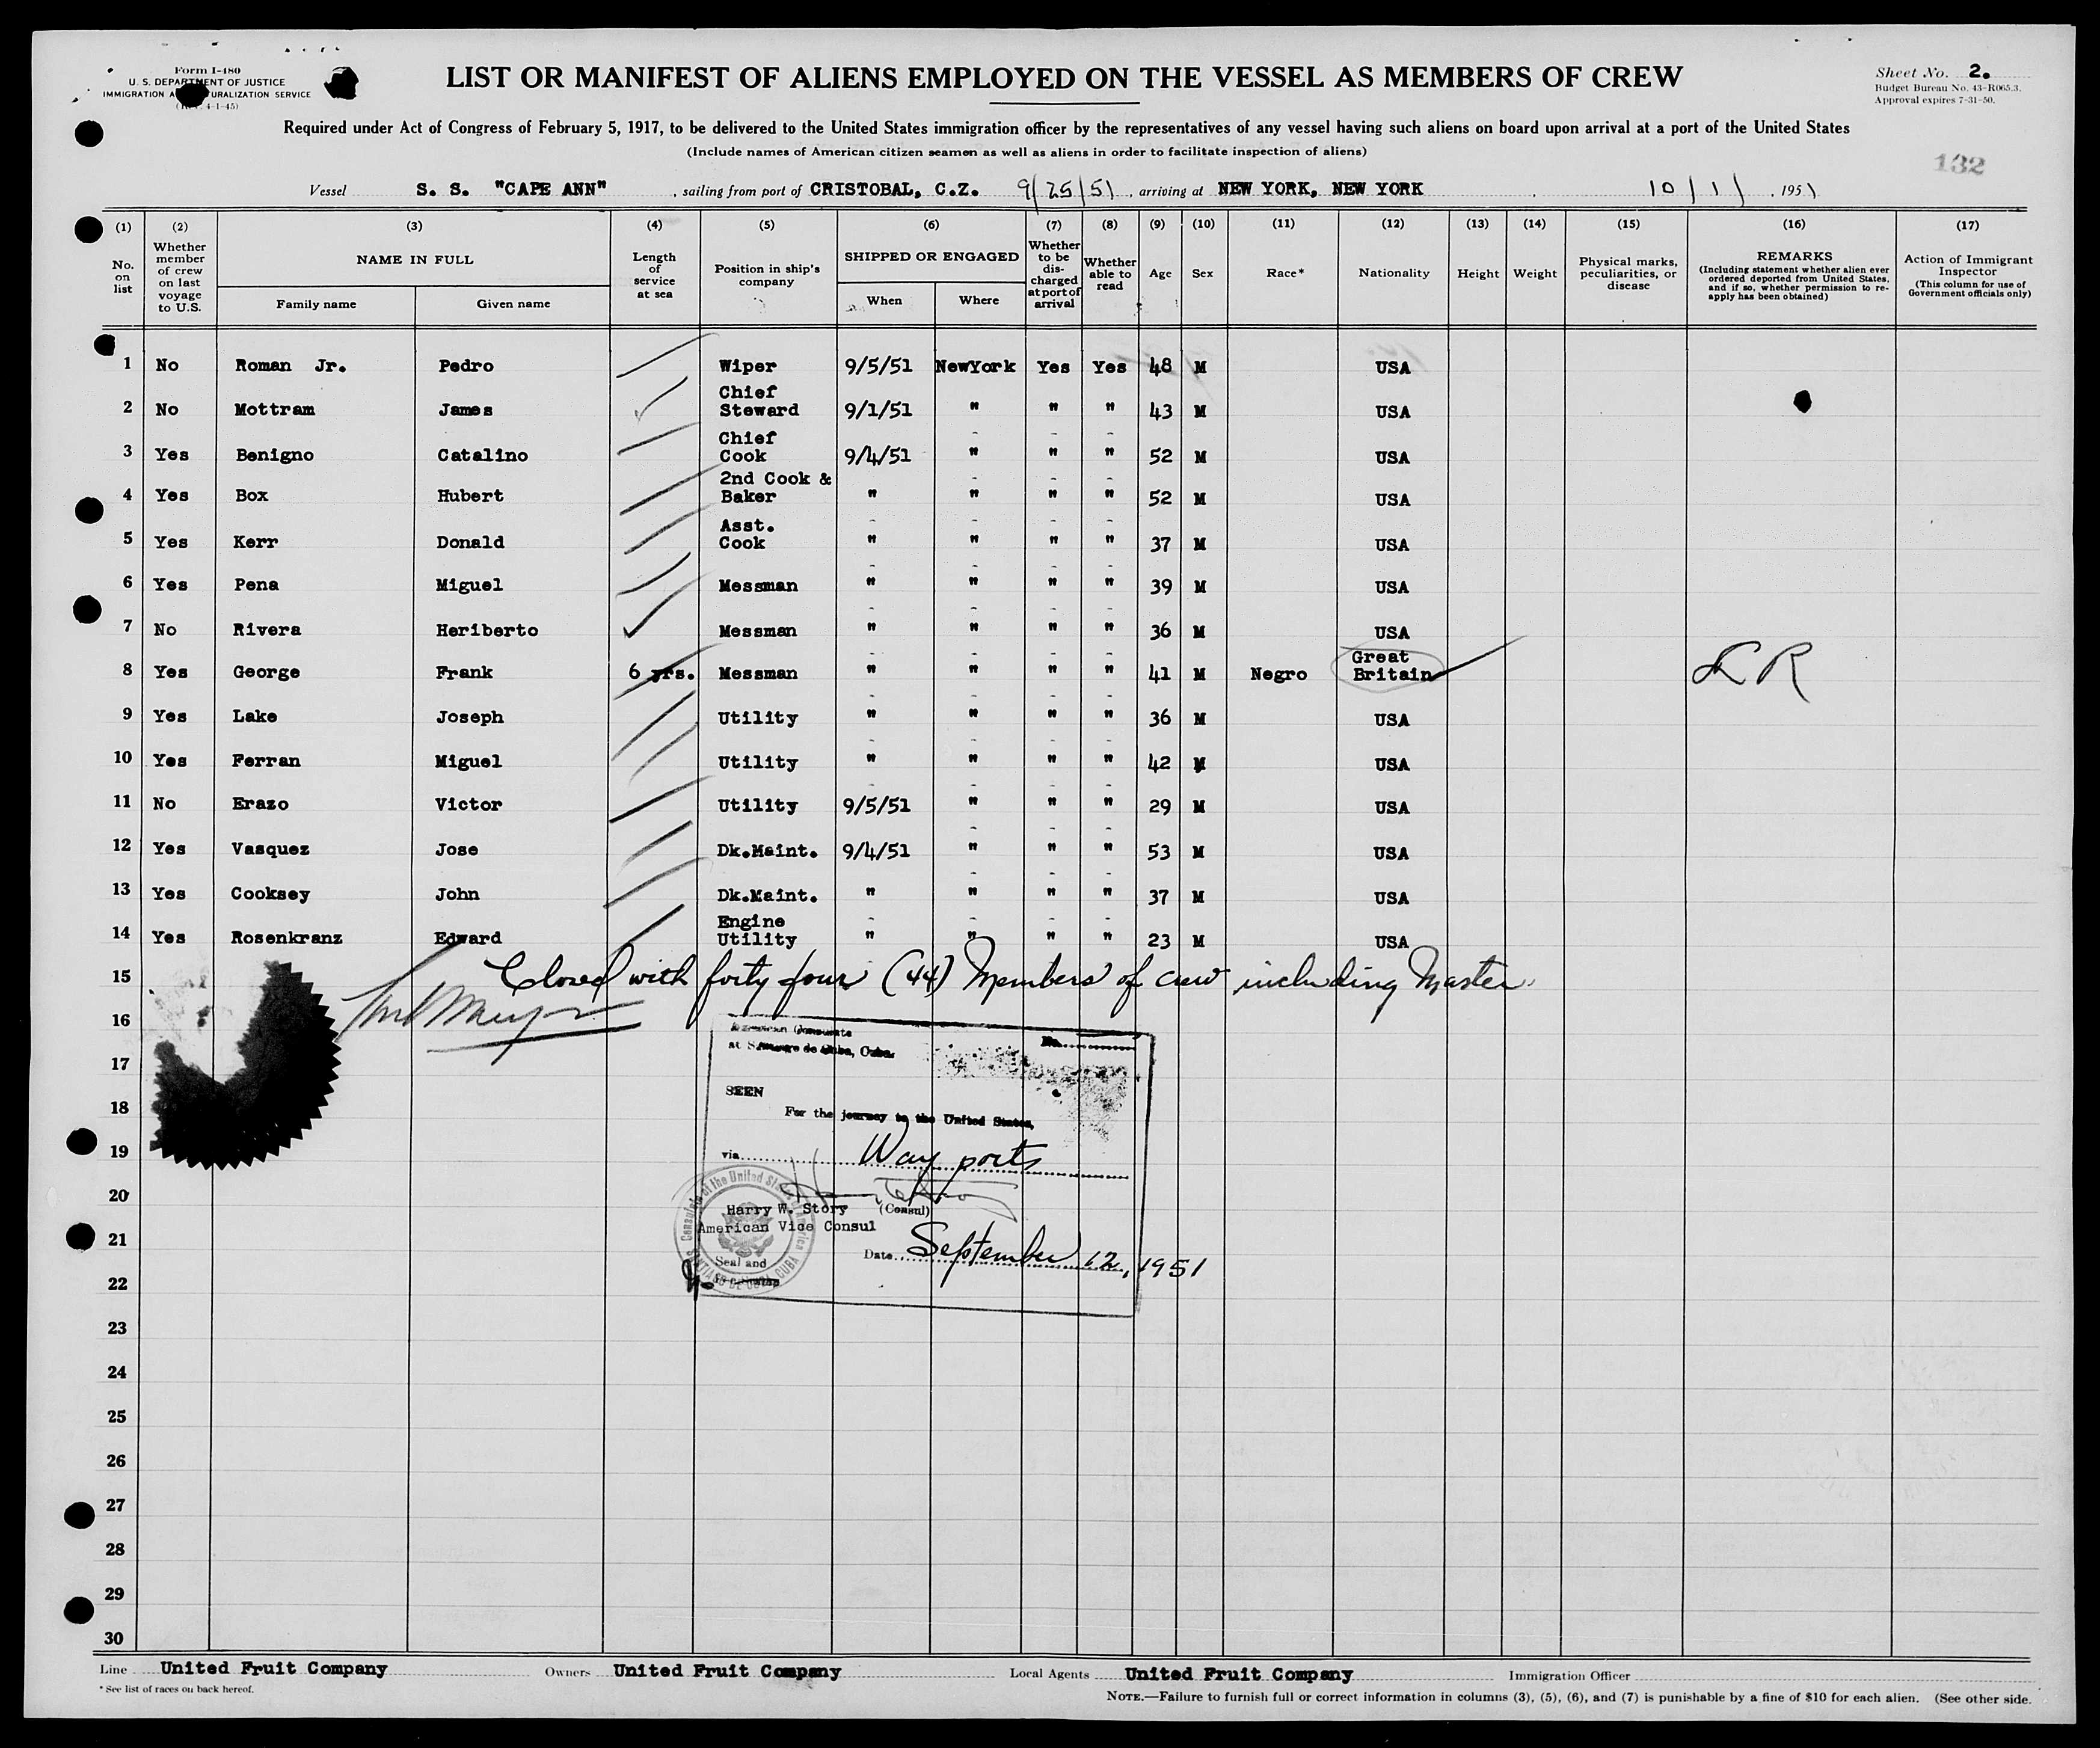 Form I-480
U. S. DEPARTMENT OF JUSTICE
IMMIGRATION AND NATURALIZATION SERVICE
(Rev. 4-1-45)
LIST OR MANIFEST OF ALIENS EMPLOYED ON THE VESSEL AS MEMBERS OF CREW
Sheet No. 2.
Budget Bureau No. 43-R065.3.
Approval expires 7-31-50.
Required under Act of Congress of February 5, 1917, to be delivered to the United States immigration officer by the representatives of any vessel having such aliens on board upon arrival at a port of the United States
(Include names of American citizen seamen as well as aliens in order to facilitate inspection of aliens)
132
Vessel S. S. "CAPE ANN", sailing from port of CRISTOBAL, C.Z. 9/25/51, arriving at NEW YORK, NEW YORK 10/1/, 1951
(1) (2) (3) (4) (5) (6) (7) (8) (9) (10) (11) (12) (13) (14) (15) (16) (17)
No. on list
Whether member of crew on last voyage to U.S.
NAME IN FULL
Family name Given name
Length of service at sea
Position in ship's company
SHIPPED OR ENGAGED
When Where
Whether to be discharged at port of arrival
Whether able to read
Age
Sex
Race*
Nationality
Height
Weight
Physical marks, peculiarities, or disease
REMARKS
(Including statement whether alien ever ordered deported from United States, and if so, whether permission to reapply has been obtained)
Action of Immigrant Inspector
(This column for use of Government officials only)
1 No Roman Jr. Pedro Wiper 9/5/51 NewYork Yes Yes 48 M USA
2 No Mottram James Chief Steward 9/1/51 " " " 43 M USA
3 Yes Benigno Catalino Chief Cook 9/4/51 " " " 52 M USA
4 Yes Box Hubert 2nd Cook & Baker " " " " 52 M USA
5 Yes Kerr Donald Asst. Cook " " " " 37 M USA
6 Yes Pena Miguel Messman " " " " 39 M USA
7 No Rivera Heriberto Messman " " " " 36 M USA
8 Yes George Frank 6 yrs. Messman " " " " 41 M Negro Great Britain LR
9 Yes Lake Joseph Utility " " " " 36 M USA
10 Yes Ferran Miguel Utility " " " " 42 M USA
11 No Erazo Victor Utility 9/5/51 " " " 29 M USA
12 Yes Vasquez Jose Dk.Maint. 9/4/51 " " " 53 M USA
13 Yes Cooksey John Dk.Maint. " " " " 37 M USA
14 Yes Rosenkranz Edward Engine Utility " " " " 23 M USA
15 Closed with forty four (44) Members of crew including Master
16
American Consulate
No.
at Santiago de Cuba, Cuba.
17
SEEN
18
For the journey to the United States,
19
via Way ports
20
Harry W. Story (Consul)
American Vice Consul
21
Date September 12, 1951
Seal and
Consulate of the United States of America
SANTIAGO DE CUBA, CUBA
22
23
24
25
26
27
28
29
30
Line United Fruit Company Owners United Fruit Company Local Agents United Fruit Company Immigration Officer
*See list of races on back hereof.
NOTE.—Failure to furnish full or correct information in columns (3), (5), (6), and (7) is punishable by a fine of $10 for each alien. (See other side.